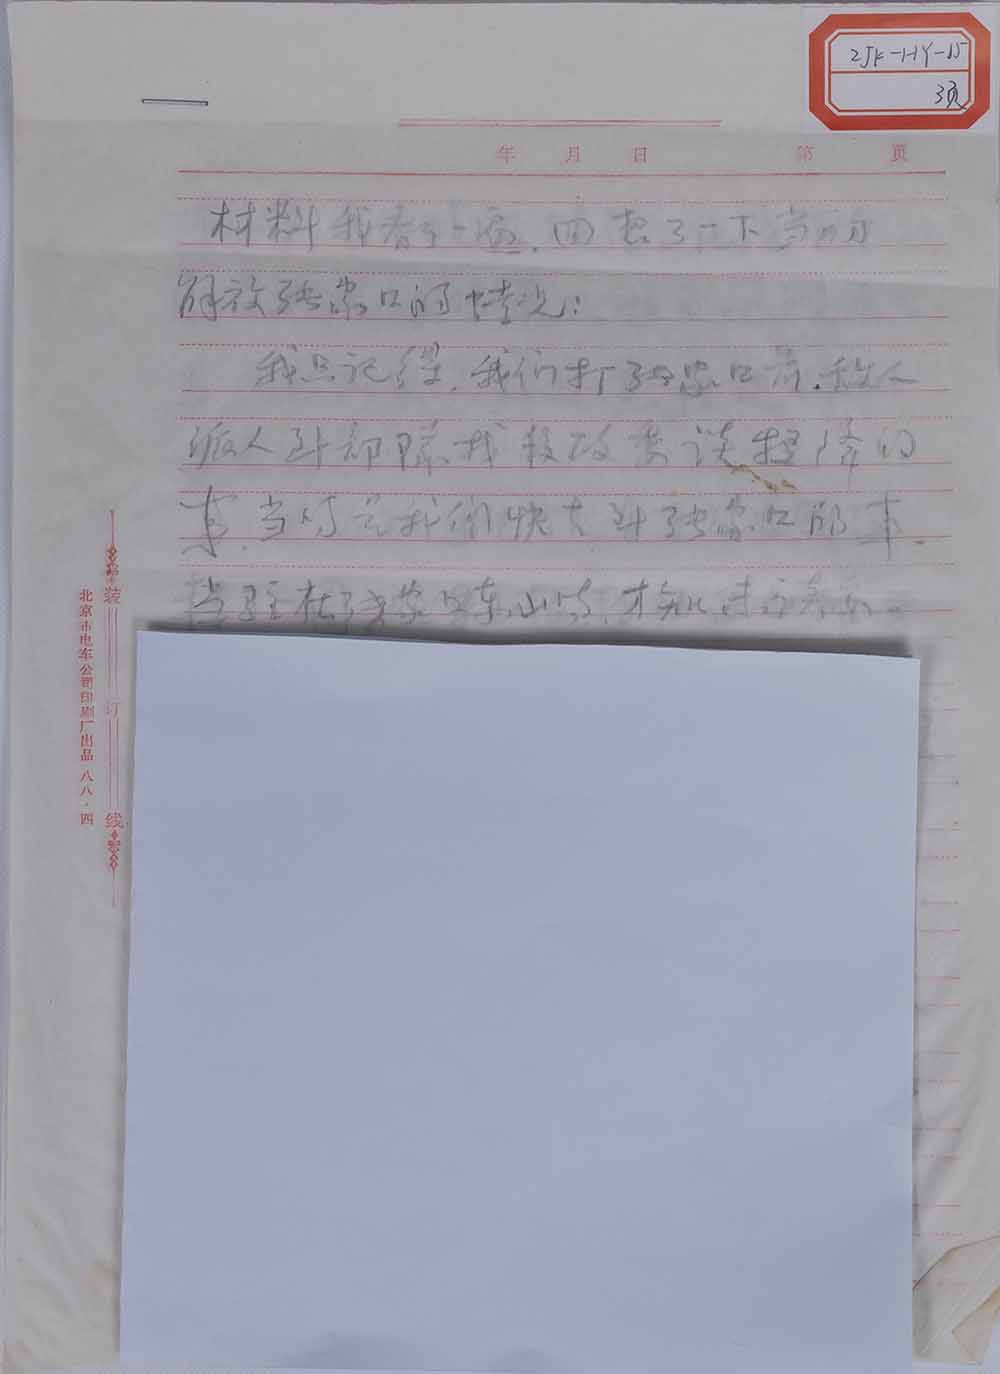 ZJK-HY-15
3页
年 月 日 第 页
材料我看了一遍，回想了一下当时
解放张家口的情况：
我只记得，我们打张家口前，敌人
派人到部队我 谈投降的
事，当时是我们快去到张家口的事，
当 在张家口东山
装订线
北京市电车公司印刷厂出品 八八·四